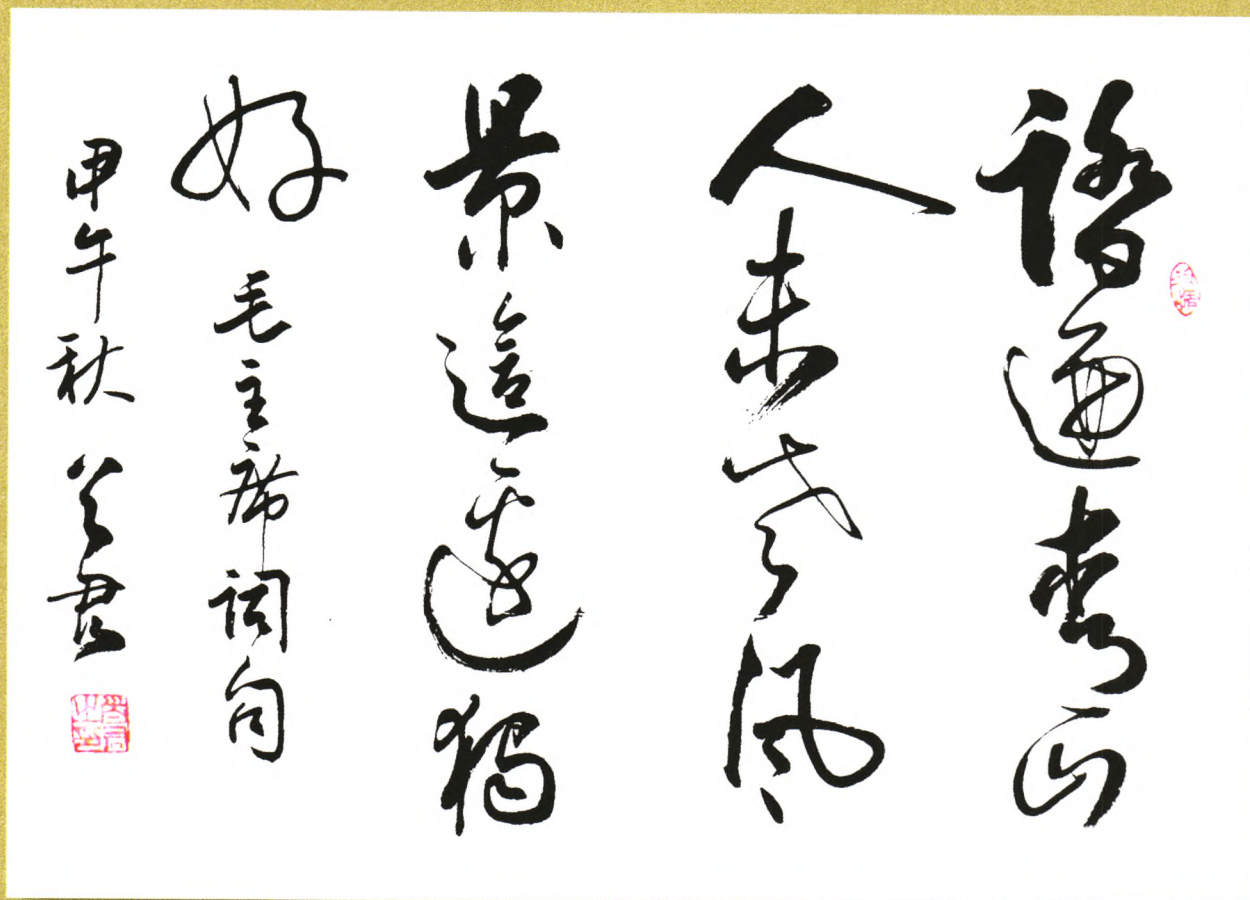 踏遍青山
人未老風
景這邊獨
好 毛主席詞句
甲午秋 芝君